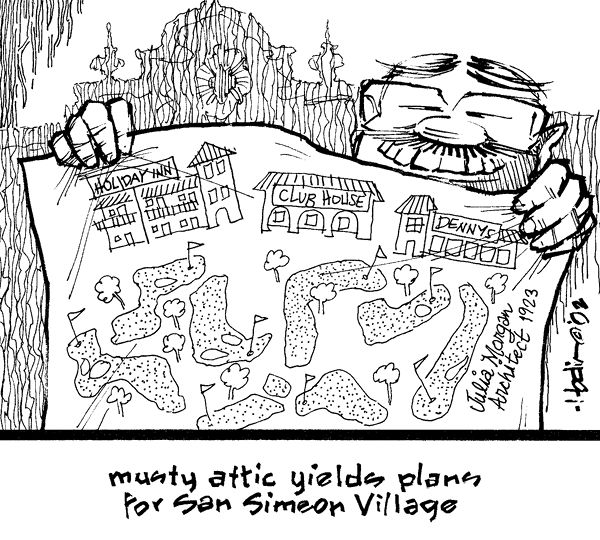 HOLIDAY INN
CLUB HOUSE
DENNYS
Julia Morgan
Architect 1923
musty attic yields plans
for San Simeon Village